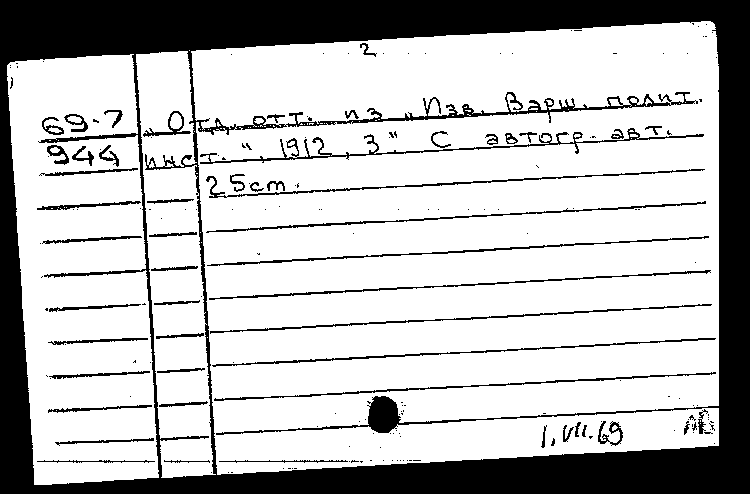 2
69-7 „Отд. отт. из „Изв. Варш. полит.
944 инст.“, 1912, 3“. С автогр. авт.
25cm.
1.VII.69